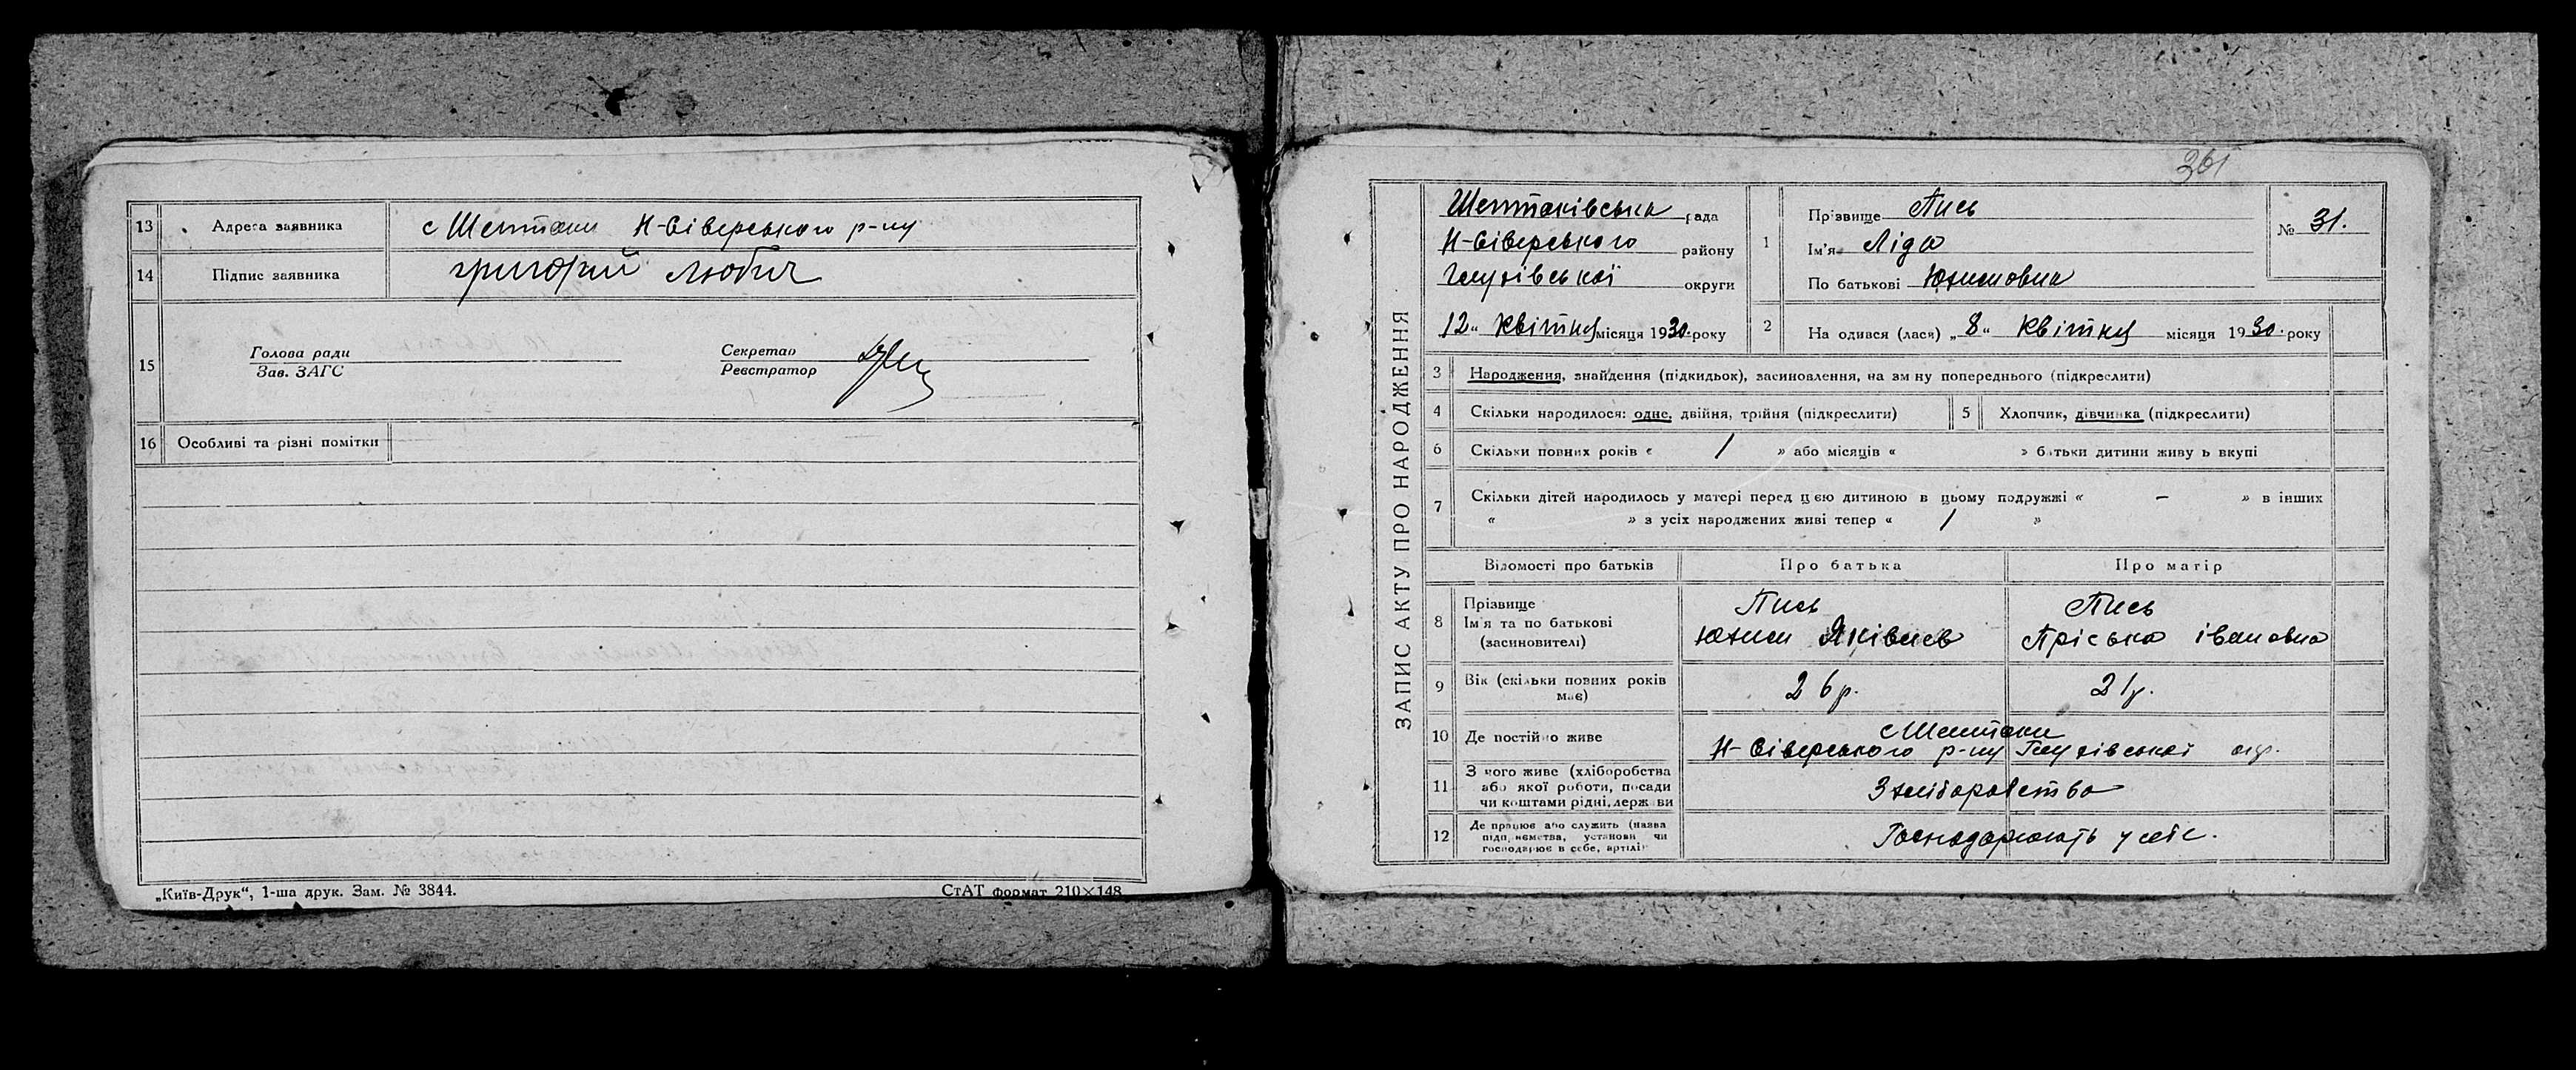 13 Адреса заявника с Шептаки Н-Сіверського р-ну
14 Підпис заявника григорий Любич
15 Голова ради
Зав. ЗАГС
Секретар
Реєстратор
16 Особливі та різні помітки
„Київ-Друк“, 1-ша друк. Зам. № 3844.
СтАТ формат 210×148
361
ЗАПИС АКТУ ПРО НАРОДЖЕННЯ
Шептаківська рада
Н-Сіверського району
Глухівської округи
12 “ Квітня місяця 1930. року
1 Прізвище Пись
Ім'я Ліда
По батькові Юхимовна
№ 31.
2 На одився (лася) „ 8 “ Квітня місяця 1930. року
3 Народження, знайдення (підкидьок), засиновлення, на зм ну попереднього (підкреслити)
4 Скільки народилося: одне, двійня, трійня (підкреслити)
5 Хлопчик, дівчинка (підкреслити)
6 Скільки повних років « 1 » або місяців « » батьки дитини живу ь вкупі
7 Скільки дітей народилось у матері перед цією дитиною в цьому подружжі « – » в інших
« » з усіх народжених живі тепер « 1 »
Відомості про батьків Про батька Про матір
8 Прізвище
Ім'я та по батькові
(засиновителі)
Пись
Юхим Яківлев
Пись
Пріська івановна
9 Вік (скільки повних років
має)
26 р. 21 р.
10 Де постійно живе
с Шептаки
Н-Сіверського р-ну Глухівської окр.
11 З чого живе (хліборобства
або якої роботи, посади
чи коштами рідні, держави
З хліборобства
12 Де працює або служить (назва
підприємства, установи чи
господарює в себе, артілі)
Господарюють у себе.